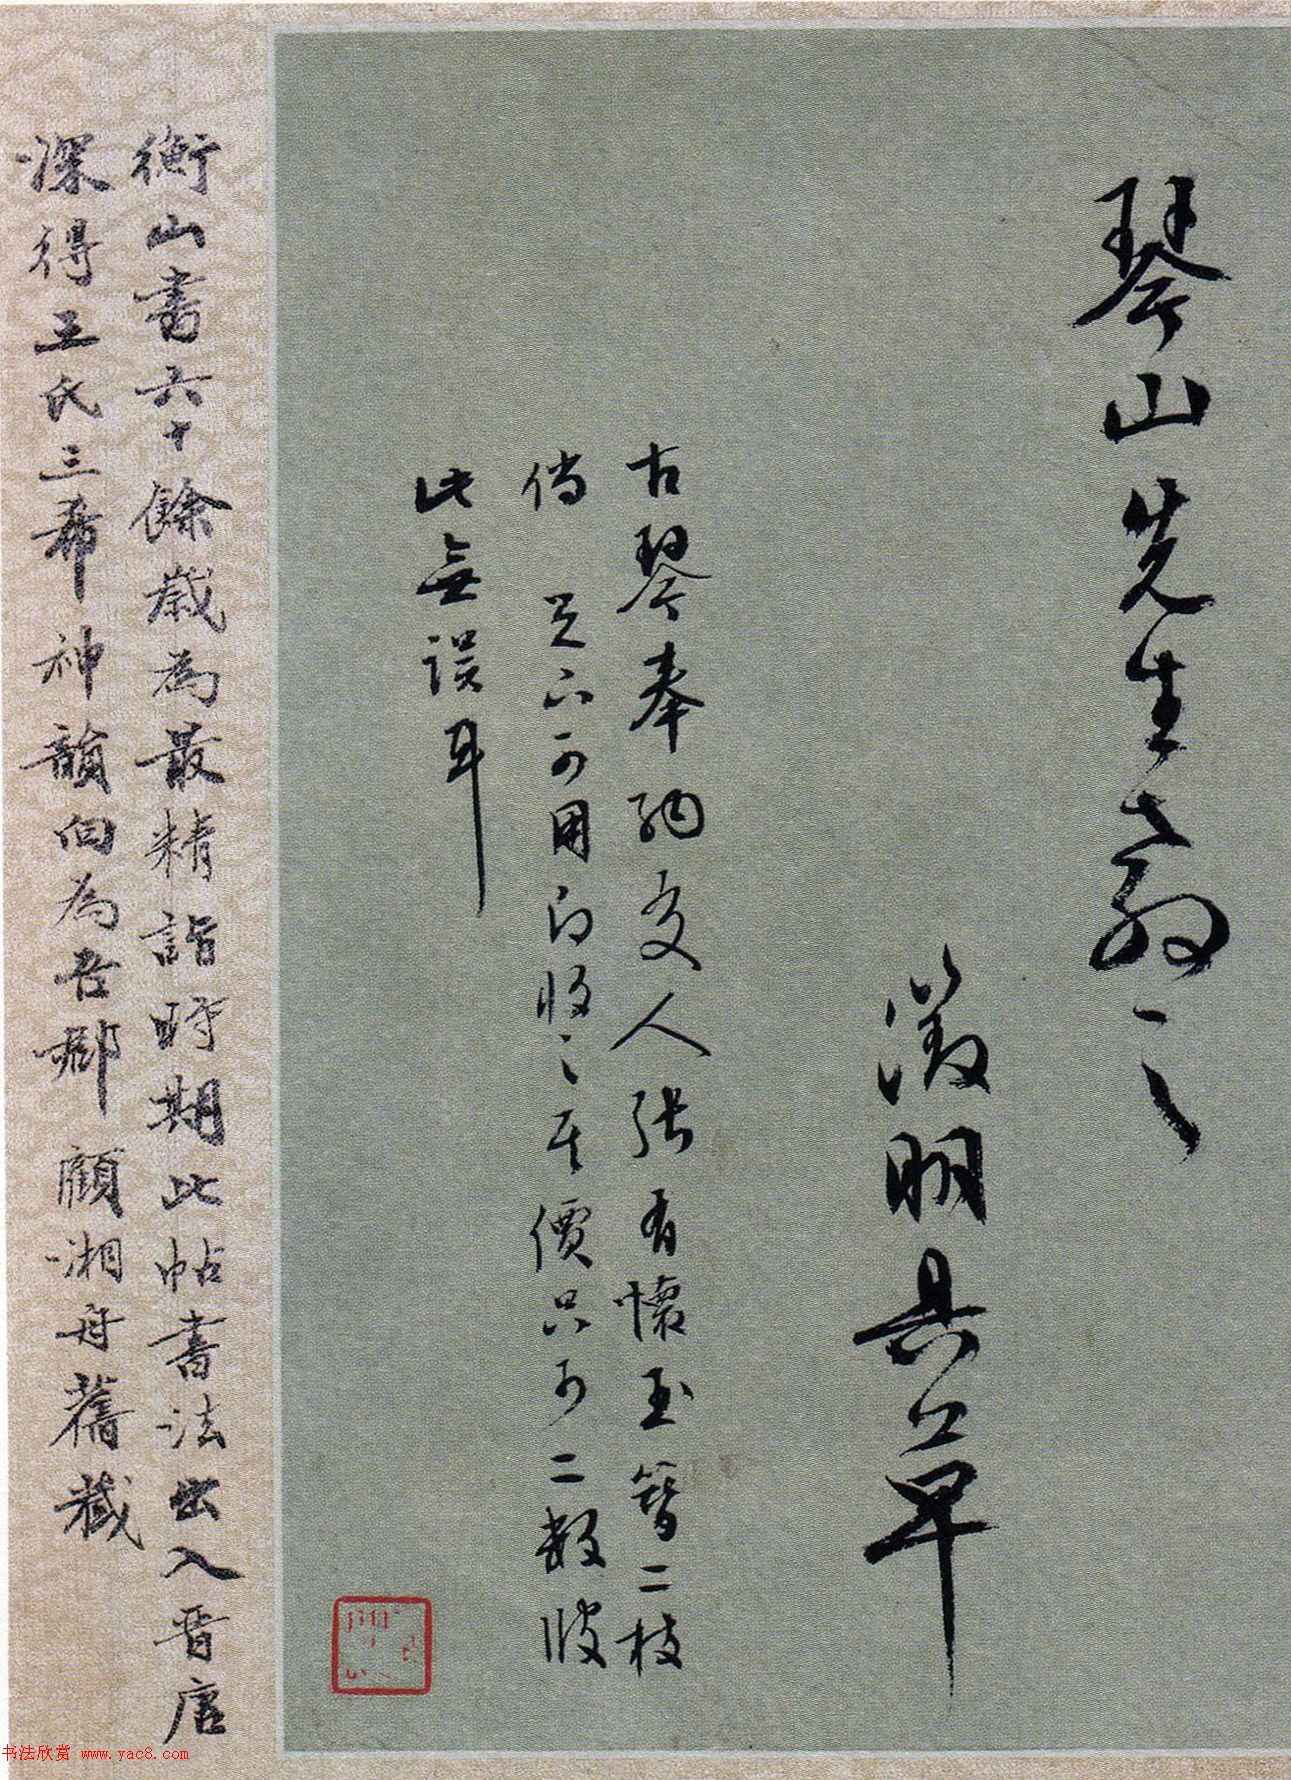 琴山先生
徵明具草
古琴奉納友人張有懷玉簪二枝
倘 足下可用即收之其價只可二數
此無誤耳
衡山書六十餘歲為最精詣時期此帖書法出入晉唐
深得王氏三希神韻向為吾鄉顧湘舟舊藏
书法欣赏 www.yac8.com